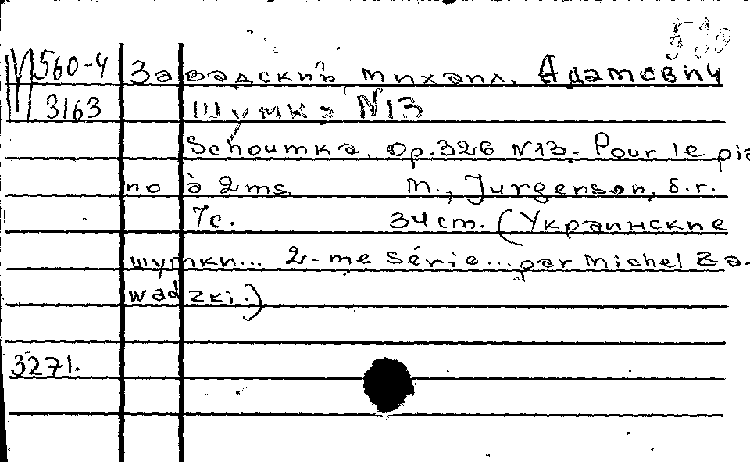 530
М560-4 Завадский Михаил Адамович
3163 Шутка N13
Schoumka. Op.326 N13.- Pour le pia
no à 2 ms. М., Jurgenson, б.г.
7с. 34 cm. (Украинские
шутки... 2-me Série... par Michel Za-
wadzki.)
3271.